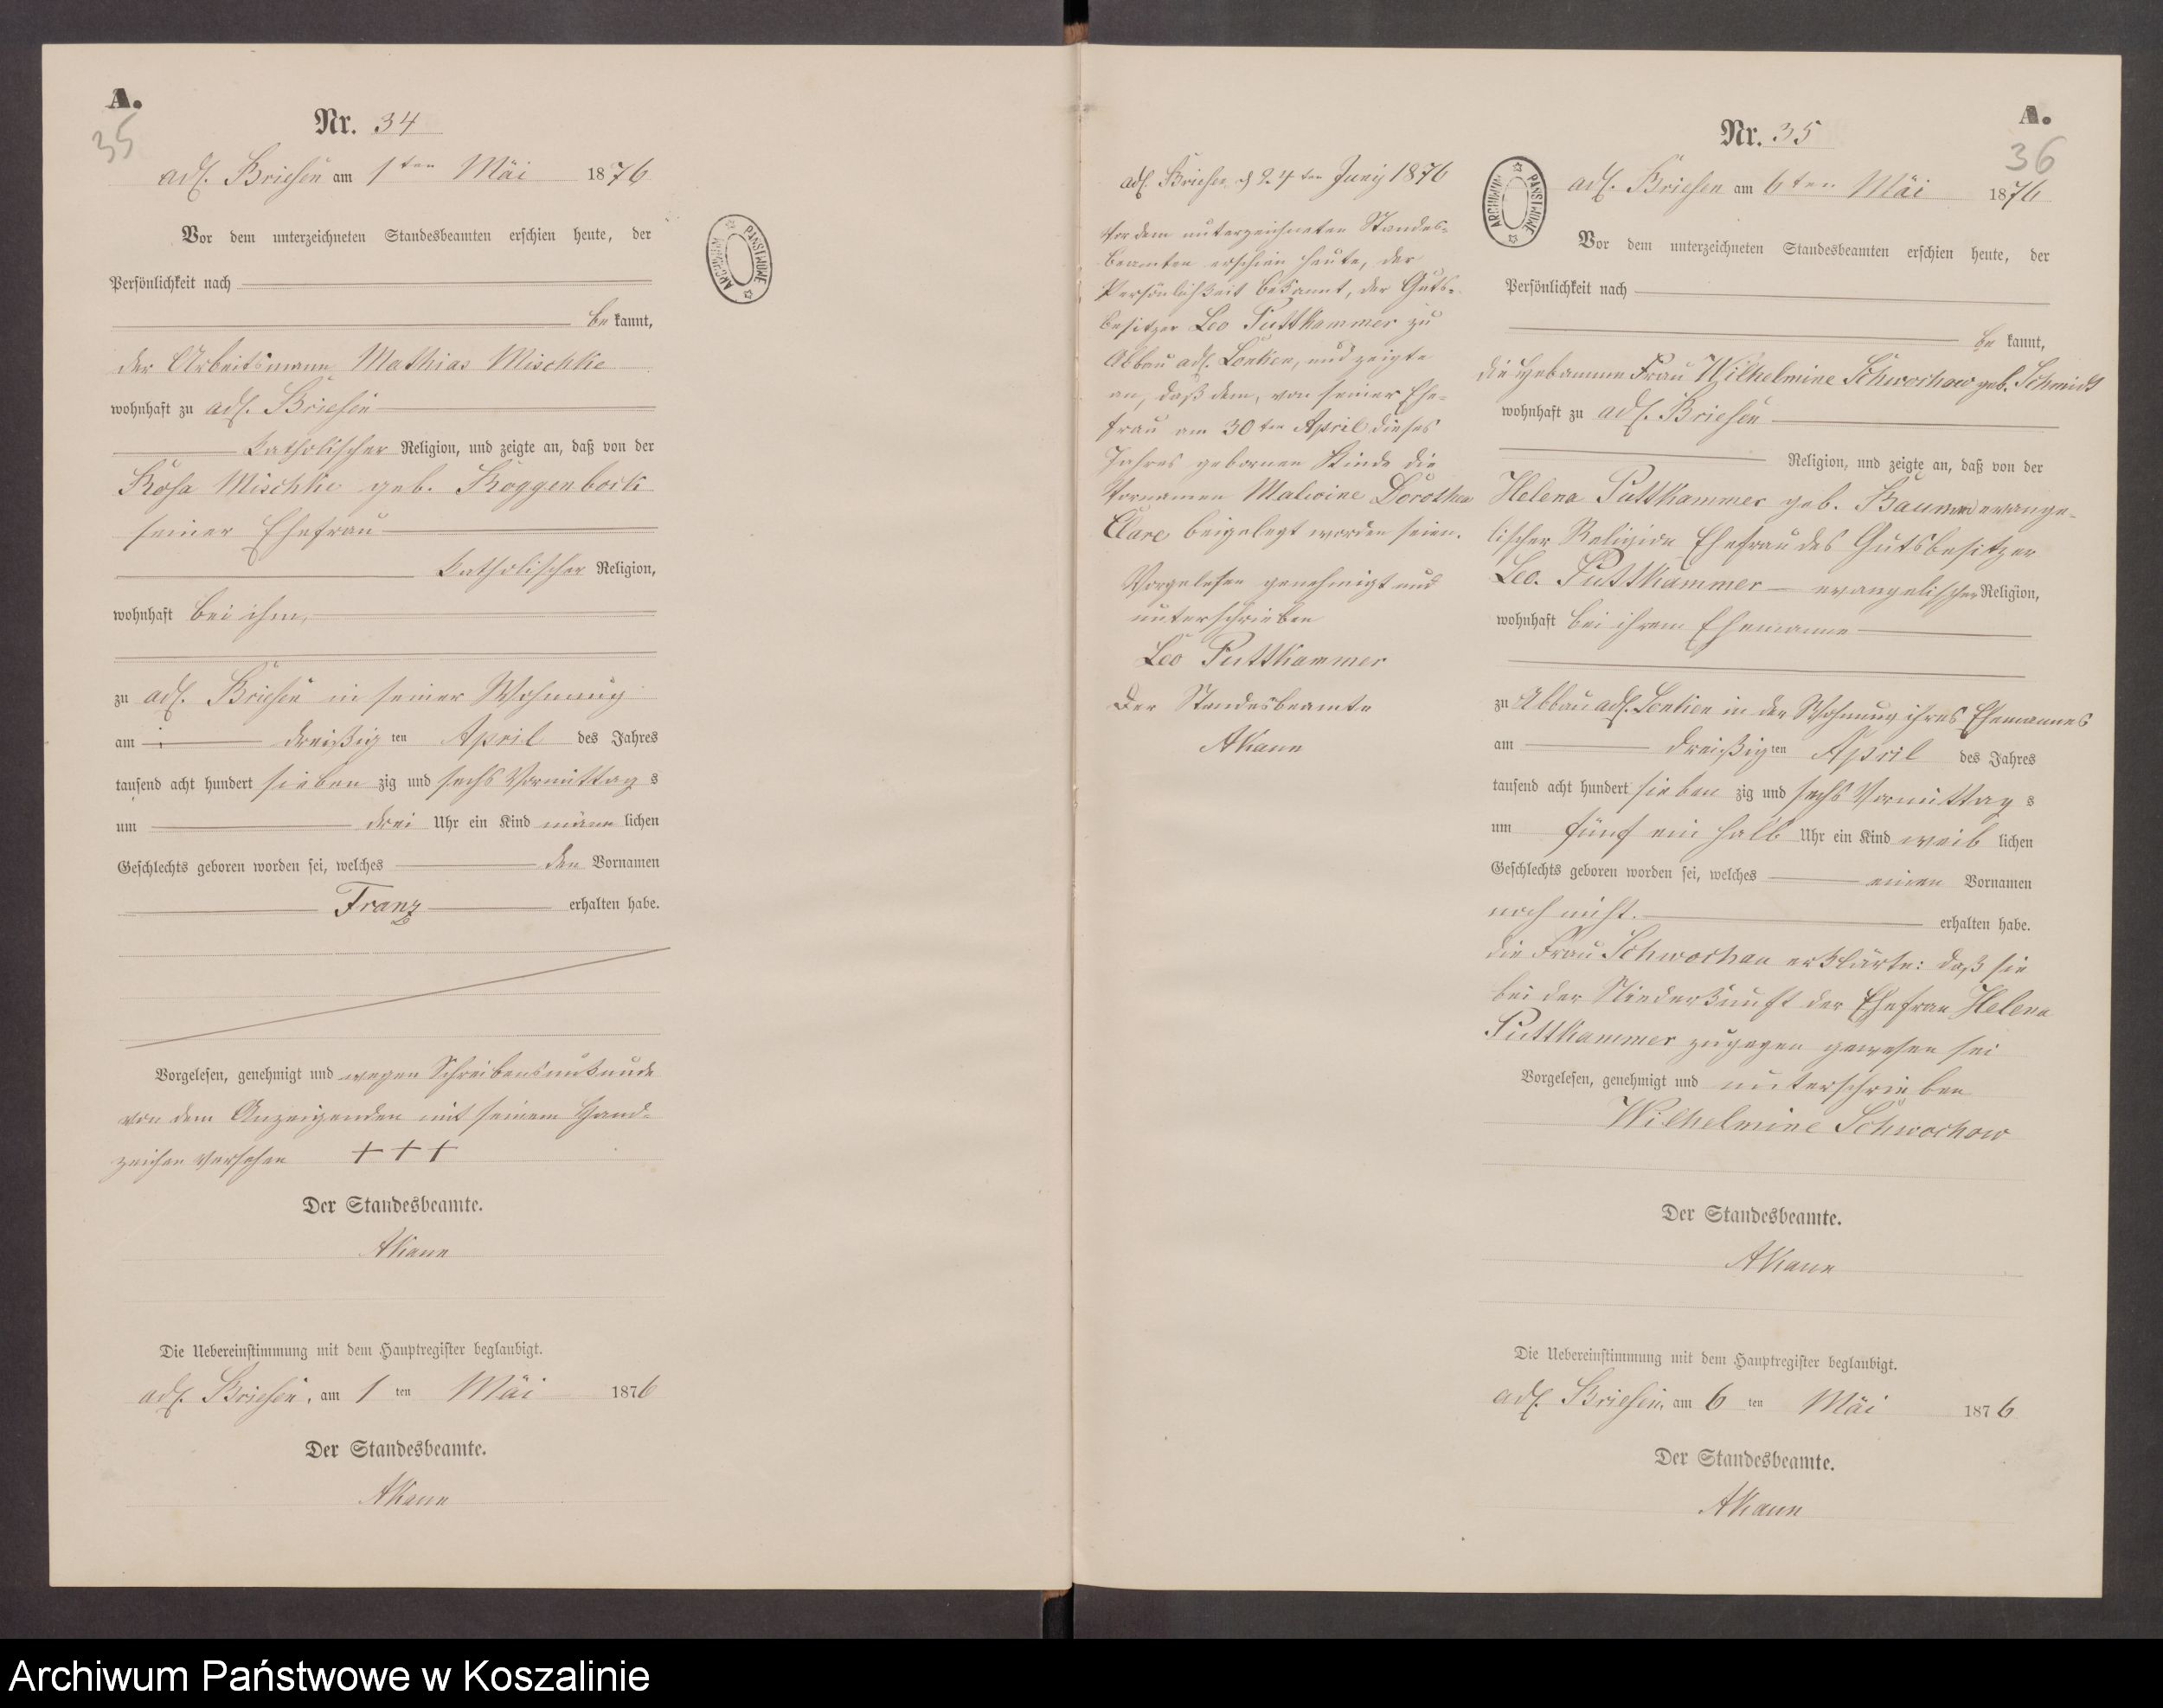 A.
35
Nr. 34
adl. Briesen am 1ten Mai 1876
Vor dem unterzeichneten Standesbeamten erschien heute, der
Persönlichkeit nach
be kannt,
der Arbeitsmann Mathias Mischke
wohnhaft zu adl. Briesen
katholischer Religion, und zeigte an, daß von der
Rosa Mischke geb. Roggenbock
seiner Ehefrau
katholischer Religion,
wohnhaft bei ihm,
zu adl. Briesen in seiner Wohnung
am dreißig ten April des Jahres
tausend acht hundert sieben zig und sechs Vormittag s
um drei Uhr ein Kind männ lichen
Geschlechts geboren worden sei, welches den Vornamen
Franz erhalten habe.
Vorgelesen, genehmigt und wegen Schreibensunkunde
von dem Anzeigenden mit seinem Hand-
zeichen versehen +++
Der Standesbeamte.
AKann
Die Uebereinstimmung mit dem Hauptregister beglaubigt.
adl. Briesen, am 1 ten Mai 1876
Der Standesbeamte.
AKann
ARCHIWUM PAŃSTWOWE
adl. Briesen, d 24ten Juny 1876
Vor dem unterzeichneten Standes-
beamten erschien heute, der
Persönlichkeit bekannt, der Guts-
besitzer Leo Puttkammer zu
Abbau adl. Lonken, und zeigte
an, daß dem, von seiner Ehe-
frau am 30ten April dieses
Jahres gebornen Kinde die
Vornamen Malwine Dorothea
Clare beigelegt worden seien.
Vorgelesen genehmigt und
unterschrieben
Leo Puttkammer
Der Standesbeamte
AKann
ARCHIWUM PAŃSTWOWE
A.
36
Nr. 35
adl. Briesen am 6ten Mai 1876
Vor dem unterzeichneten Standesbeamten erschien heute, der
Persönlichkeit nach
be kannt,
die Hebamme Frau Wilhelmine Schwochow geb. Schmidt
wohnhaft zu adl. Briesen
Religion, und zeigte an, daß von der
Helena Puttkammer geb. evange-
lischer Religion Ehefrau des Gutsbesitzer
Leo. Puttkammer evangelischer Religion,
wohnhaft bei ihrem Ehemanne
zu Abbau adl. Lonken in der Wohnung ihres Ehemannes
am dreißig ten April des Jahres
tausend acht hundert sieben zig und sechs Vormittag s
um fünf ein halb Uhr ein Kind weib lichen
Geschlechts geboren worden sei, welches einen Vornamen
noch nicht. erhalten habe.
die Frau Schwochau erklärte: daß sie
bei der Niederkunft der Ehefrau Helena
Puttkammer zugegen gewesen sei
Vorgelesen, genehmigt und unterschrieben
Wilhelmine Schwochow
Der Standesbeamte.
AKann
Die Uebereinstimmung mit dem Hauptregister beglaubigt.
adl. Briesen, am 6 ten Mai 1876
Der Standesbeamte.
AKann
Archiwum Państwowe w Koszalinie